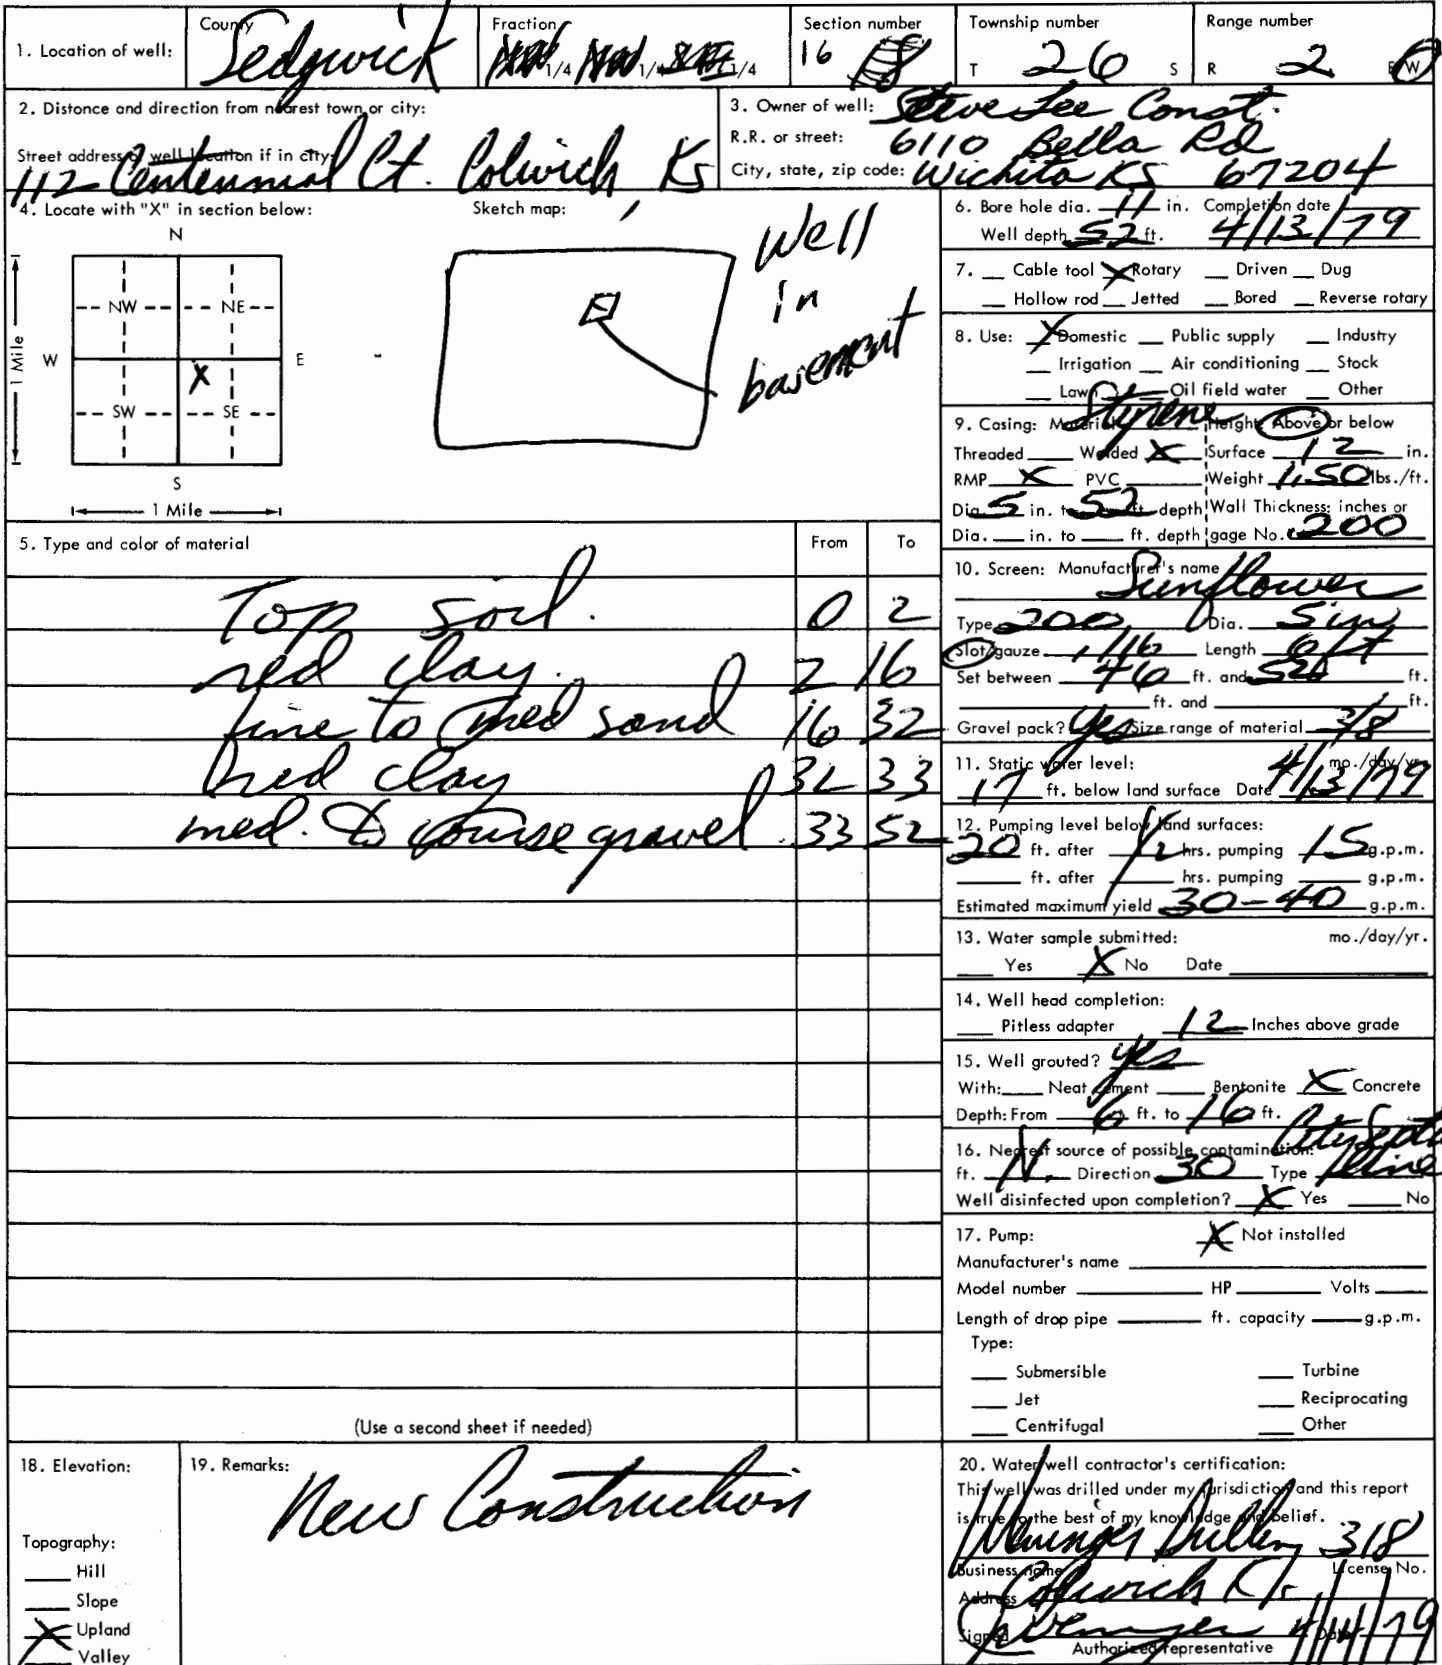 1. Location of well: County Sedgwick Fraction 1/4 1/4 1/4 Section number 16 8 Township number T 26 S Range number R 2 E W
2. Distance and direction from nearest town or city:
Street address of well location if in city:
112 Centennial Ct. Colwich Ks
3. Owner of well: Steve Lee Const.
R.R. or street: 6110 Bella Rd
City, state, zip code: Wichita KS 67204
4. Locate with "X" in section below:
N
NW NE
W E
X
SW SE
S
1 Mile
1 Mile
Sketch map:
Well
in
basement
6. Bore hole dia. 11 in. Completion date
Well depth 52 ft. 4/13/79
7. Cable tool X Rotary Driven Dug
Hollow rod Jetted Bored Reverse rotary
8. Use: X Domestic Public supply Industry
Irrigation Air conditioning Stock
Lawn Oil field water Other
9. Casing: Material Styrene Height: Above or below
Threaded Welded X Surface 12 in.
RMP X PVC Weight 1.50 lbs./ft.
Dia. 5 in. to 52 ft. depth Wall Thickness: inches or
Dia. in. to ft. depth gage No. .200
5. Type and color of material From To
Top soil. 0 2
red clay. 2 16
fine to med sand 16 32
red clay 32 33
med. to course gravel 33 52
(Use a second sheet if needed)
10. Screen: Manufacturer's name
Sunflower
Type 200 Dia. 5 in
Slot/gauze 1/16 Length 6 ft
Set between 46 ft. and 52 ft.
ft. and ft.
Gravel pack? yes Size range of material 3/8
11. Static water level: mo./day/yr.
17 ft. below land surface Date 4/13/79
12. Pumping level below land surfaces:
20 ft. after 1/2 hrs. pumping 15 g.p.m.
ft. after hrs. pumping g.p.m.
Estimated maximum yield 30-40 g.p.m.
13. Water sample submitted: mo./day/yr.
Yes X No Date
14. Well head completion:
Pitless adapter 12 Inches above grade
15. Well grouted? yes
With: Neat cement Bentonite X Concrete
Depth: From 6 ft. to 16 ft.
16. Nearest source of possible contamination: City
ft. N. Direction 30 Type line
Well disinfected upon completion? X Yes No
17. Pump: X Not installed
Manufacturer's name
Model number HP Volts
Length of drop pipe ft. capacity g.p.m.
Type:
Submersible Turbine
Jet Reciprocating
Centrifugal Other
18. Elevation:
Topography:
Hill
Slope
X Upland
Valley
19. Remarks:
New Construction
20. Water well contractor's certification:
This well was drilled under my jurisdiction and this report
is true to the best of my knowledge and belief.
Weninger Drilling 318
Business name License No.
Address Colwich Ks.
Signed Weninger Date 4/14/79
Authorized representative